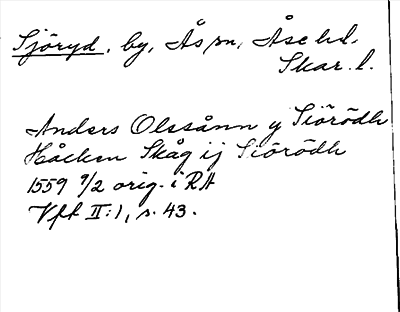 Sjöryd, by, Ås sn, Åse hd.
Skar. l.
Anders Olssånn y Siörödh
Håcken Skåg ij Siörödh
1559 9/2 orig. i RA
Vft II:1, s. 43.